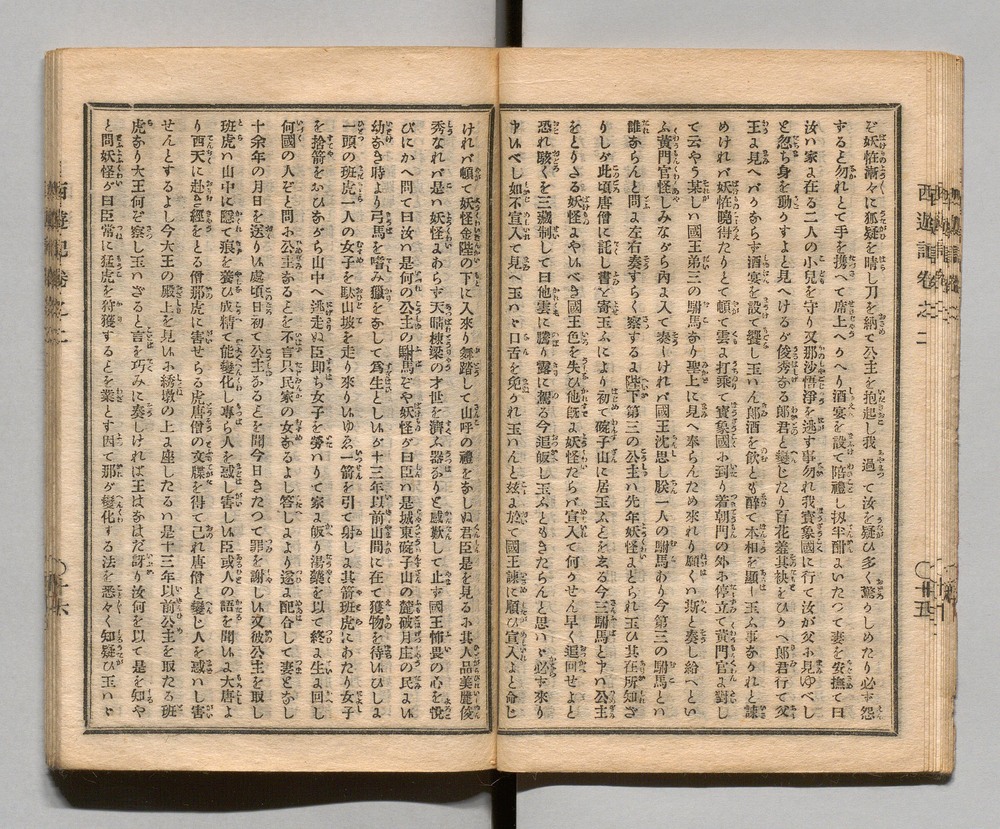 そ妖恠漸々に狐疑を晴し刀を納て公主を抱起し我過て汝を疑ひ多く驚うしめたり必す怨
すると勿れとて手を携て席上へうへり酒宴を設て陪禮し扨半酣よいたつて妻を安撫て曰
汝ハ家よ在る二人の小兒を守り又那沙悟淨を逃す事勿れ我寳象國に行て汝が父ホ見ゆべし
と忽ち身を動うすよと見へけるが俊秀なる郎君と變じたり百花羞其袂をひうへ郎君行て父
王よ見へバうならす酒宴を設て饗し玉ハん郎酒を飲とも醉て本相を顯し玉ふ事なうれと諫
めけれバ妖恠曉得たりとて頓て雲よ打乘て寳象國ホ到り着朝門の外ホ停立て黄門官よ對し
て云やう某しハ國王弟三の駙馬なり聖上に見へ奉らんため來れり願くハ斯と奏し給へとい
ふ黄門官怪しみながら内よ入て奏しけれバ國王沈思し朕一人の駙馬あり今第三の駙馬とハ
誰ならんと問よ左右奏すらく察するよ陛下第三の公主ハ先年妖怪よとられ玉ひ其在所知ざ
りしが此頃唐僧に託し書を寄玉ふにより初て碗子山に居玉ふとを玄る今三駙馬と申ハ公主
をとりさる妖怪よやハべき國王色を失ひ他既よ妖怪たらバ宣入て何うせん早く追回せよと
恐れ駭くを三藏制して曰他雲に騰り霧に駕る今追皈し玉ふともきたらんと思ハゞ必す來り
申ハべし如不宣入て見へ玉ハゞ口舌を免うれ玉ハんと玆よ於て國王諫に順ひ宣入よと命じ
西遊記卷之二
十五
けれバ頓て妖怪金陛の下に入來り舞踏して山呼の禮をなしぬ君臣是を見るホ其人品美麗俊
秀なれバ是ハ妖怪よあらす天晴棟梁の才世を濟ふ器なりと感歎して止す國王怖畏の心を悅
びにかへ問て曰汝ハ是何の公主の駙馬ぞや妖怪が曰臣ハ是城東碗子山の麓破月庄の民よハ
幼なき時より弓馬を嗜み獵をなして爲生としハが十三年以前山間に在て獲物を待ハひしよ
一頭の班虎一人の女子を駄山坡を走り來りハゆゑ一箭を引て射しよ其箭班虎にあたり女子
を捨箭をおひながら山中へ逃走ぬ臣即ち女子を勞ハりて家よ皈り湯藥を以て終よ生よ回し
何國の人ぞと問ホ公主なるとを不言只民家の女なるよし答しより遂よ配合して妻となし
十余年の月日を送りハ處頃日初て公主なるとを聞今日きたつて罪を謝しハ又彼公主を取し
班虎ハ山中に隱て痕を養ひ成精て能變化し專ら人を惑し害しハ臣或人の語を聞ハよ大唐よ
り西天に赴き經をとる僧那虎に害せらる虎唐僧の文牒を得て己れ唐僧と變じ人を惑ハし害
せんとするよし今大王の殿上を見ハホ綉墩の上よ座したるハ是十三年以前公主を取たる班
虎なり大王何ぞ察し玉ハざると言を巧みに奏しければ王はなはだ訝り汝何を以て是を知や
と問妖怪が曰臣常に猛虎を狩獲するとを業とす因て那が變化する法を悉々く知疑ひ玉ハゞ
西遊記卷之二
十六